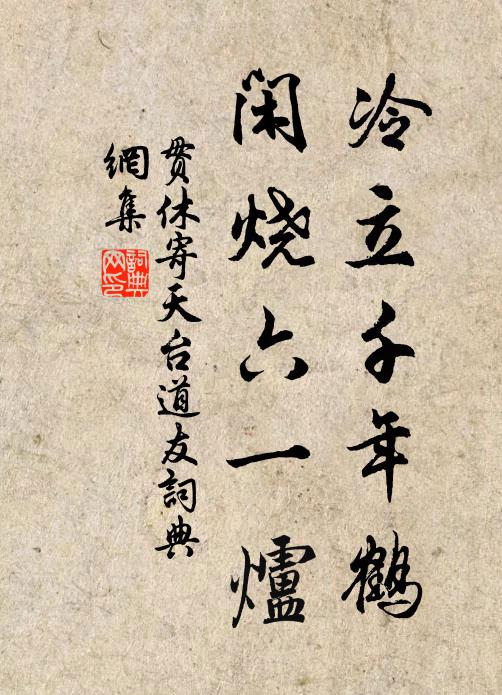 冷立千年鹤
闲烧六一爐
贯休寄天台道友詞典
網集
詞典网印